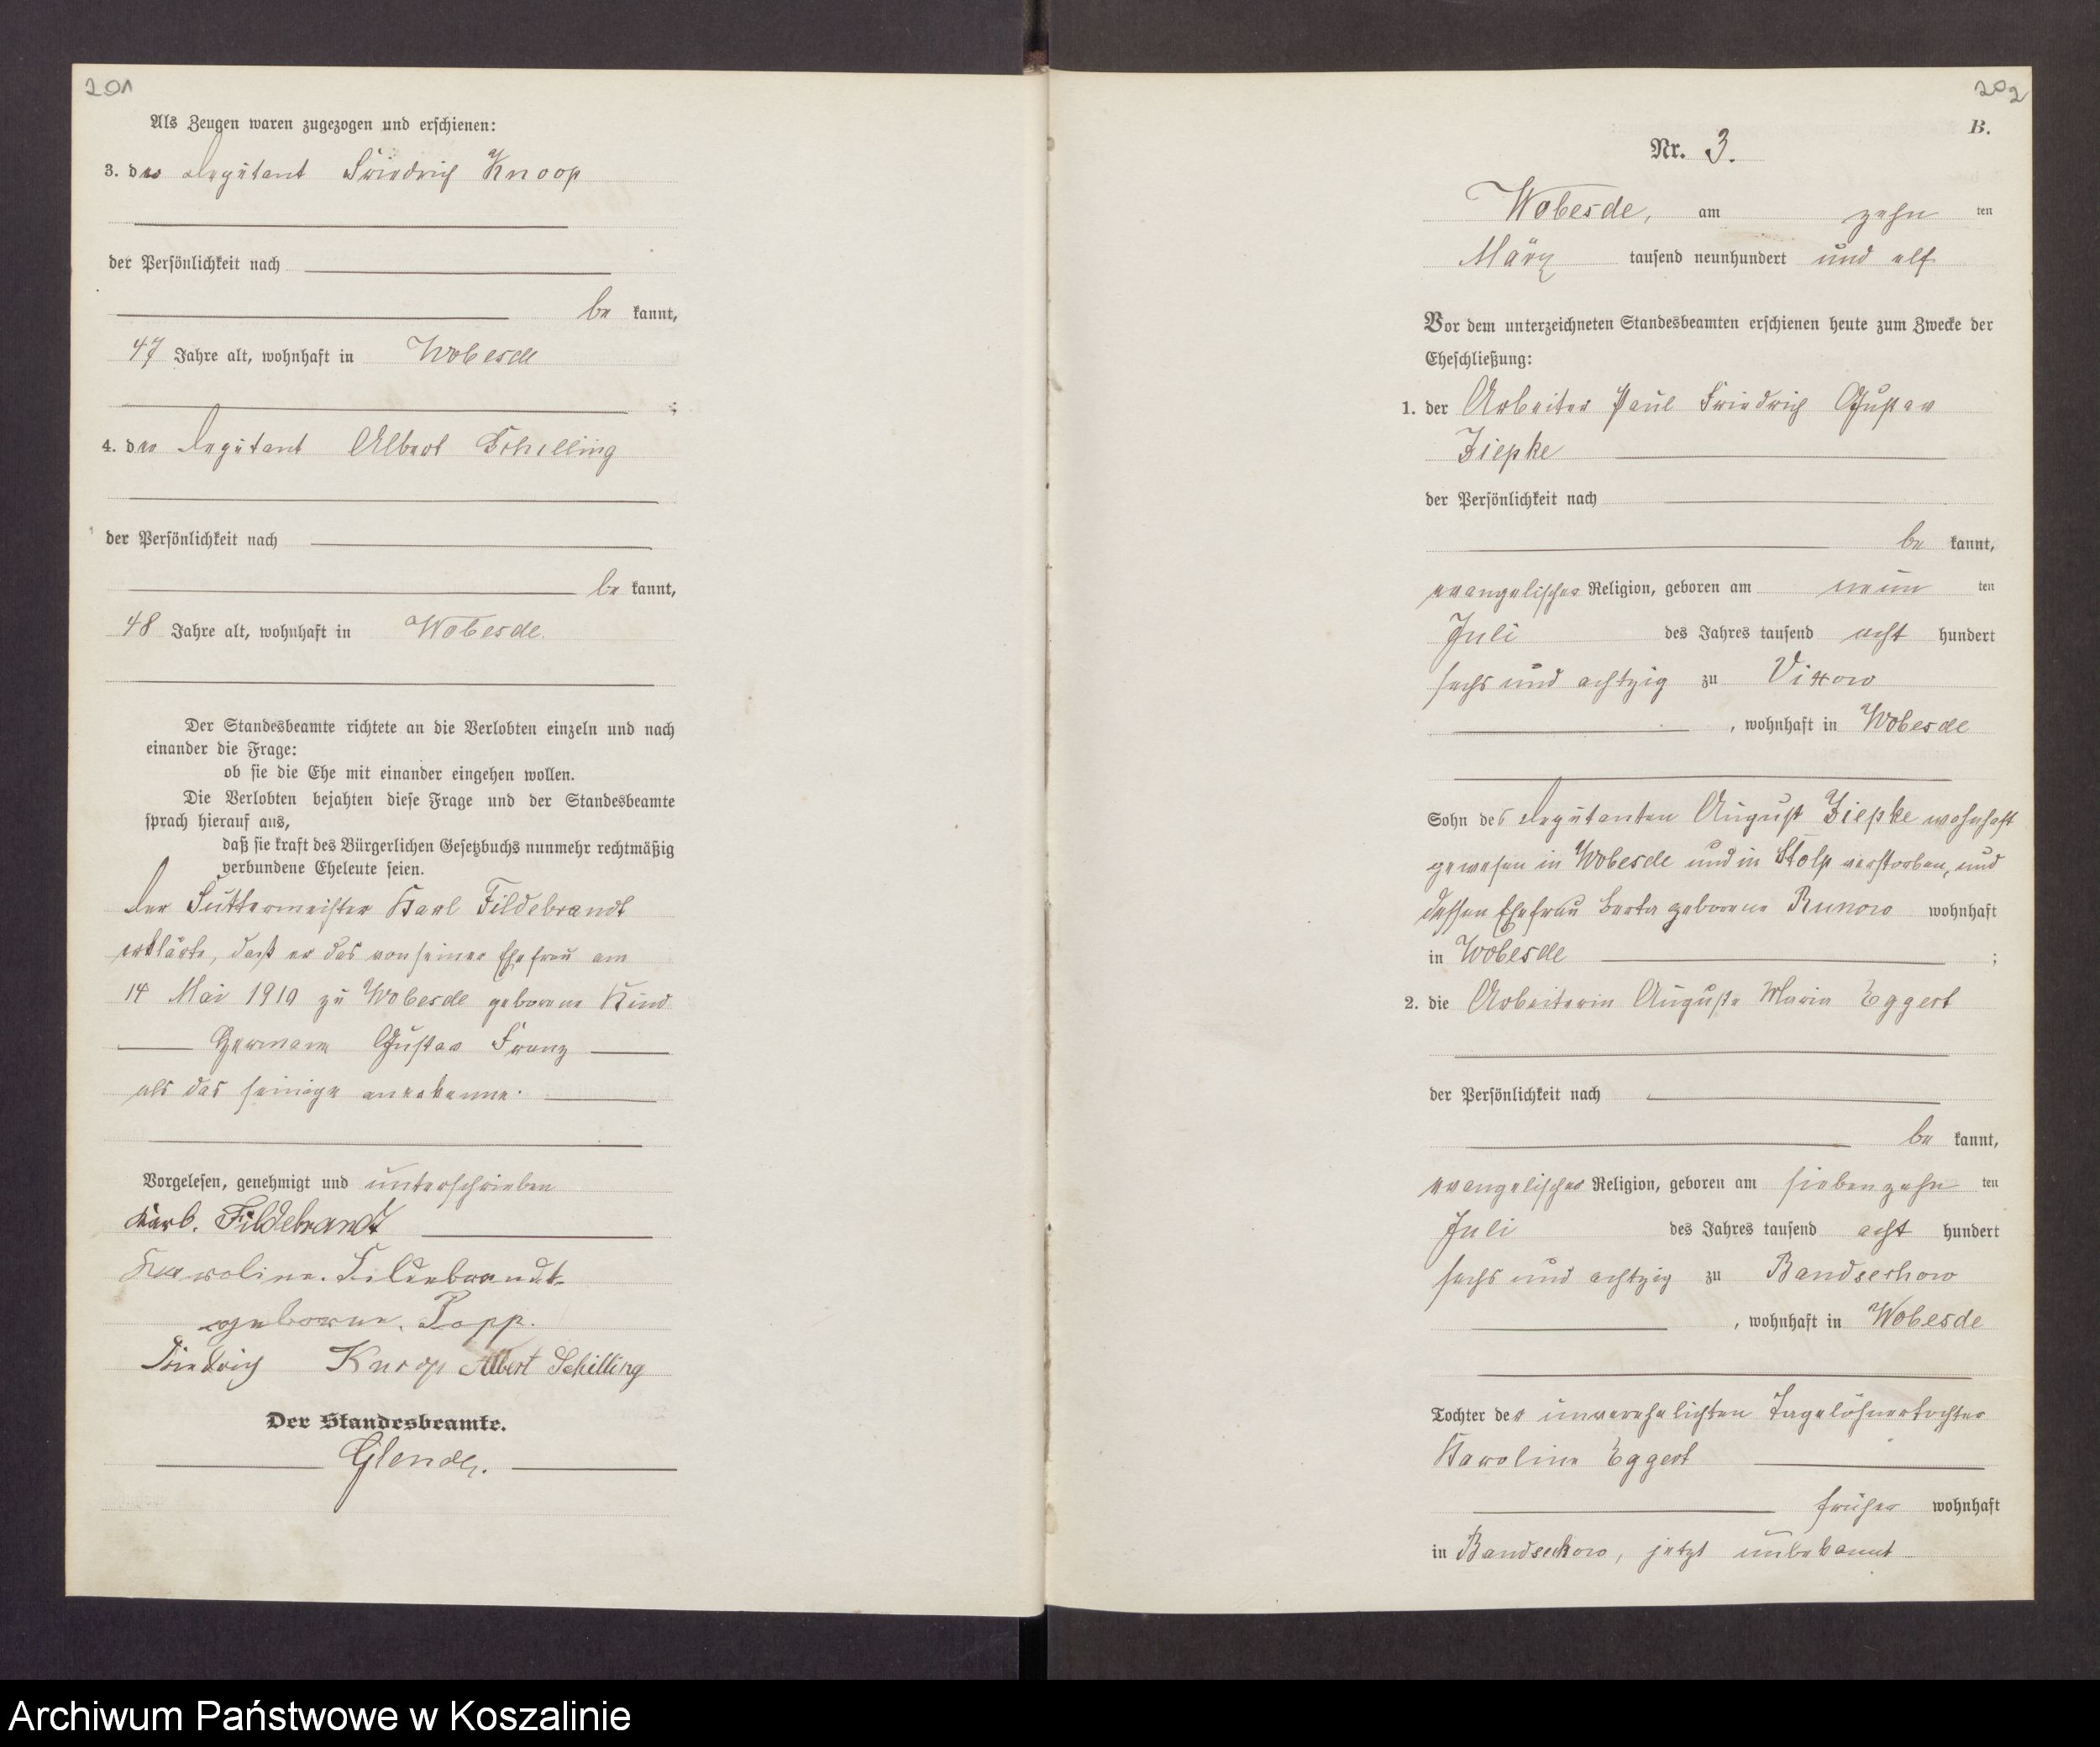 201
Als Zeugen waren zugezogen und erschienen:
3. der Deputant Friedrich Knoop
der Persönlichkeit nach
be kannt,
47 Jahre alt, wohnhaft in Wobesde
;
4. der Deputant Albert Schilling
der Persönlichkeit nach
be kannt,
48 Jahre alt, wohnhaft in Wobesde.
Der Standesbeamte richtete an die Verlobten einzeln und nach
einander die Frage:
ob sie die Ehe mit einander eingehen wollen.
Die Verlobten bejahten diese Frage und der Standesbeamte
sprach hierauf aus,
daß sie kraft des Bürgerlichen Gesetzbuchs nunmehr rechtmäßig
verbundene Eheleute seien.
Der Futtermeister Karl Fildebrandt
erklärte, daß er das von seiner Ehefrau am
14 Mai 1910 zu Wobesde geborene Kind
Hermann Gustav Franz
als das seinige anerkenne.
Vorgelesen, genehmigt und unterschrieben
Karl. Fildebrandt
Karoline. Fildebrandt
geborne. Papp.
Friedrich Knoop Albert Schilling
Der Standesbeamte.
202
B.
Nr. 3.
Wobesde, am zehn ten
März tausend neunhundert und elf
Vor dem unterzeichneten Standesbeamten erschienen heute zum Zwecke der
Eheschließung:
1. der Arbeiter Paul Friedrich Gustav
Ziepke
der Persönlichkeit nach
be kannt,
evangelischer Religion, geboren am neun ten
Juli des Jahres tausend acht hundert
sechs und achtzig zu Vixow
, wohnhaft in Wobesde
Sohn des Deputanten August Ziepke wohnhaft
gewesen in Wobesde und in Stolp verstorben, und
dessen Ehefrau Berta geborene Runow wohnhaft
in Wobesde ;
2. die Arbeiterin Auguste Maria Eggert
der Persönlichkeit nach
be kannt,
evangelischer Religion, geboren am siebenzehn ten
Juli des Jahres tausend acht hundert
sechs und achtzig zu Bandsechow
, wohnhaft in Wobesde
Tochter der unverehelichten Tagelöhnertochter
Karoline Eggert
früher wohnhaft
in Bandsechow, jetzt unbekannt
Archiwum Państwowe w Koszalinie